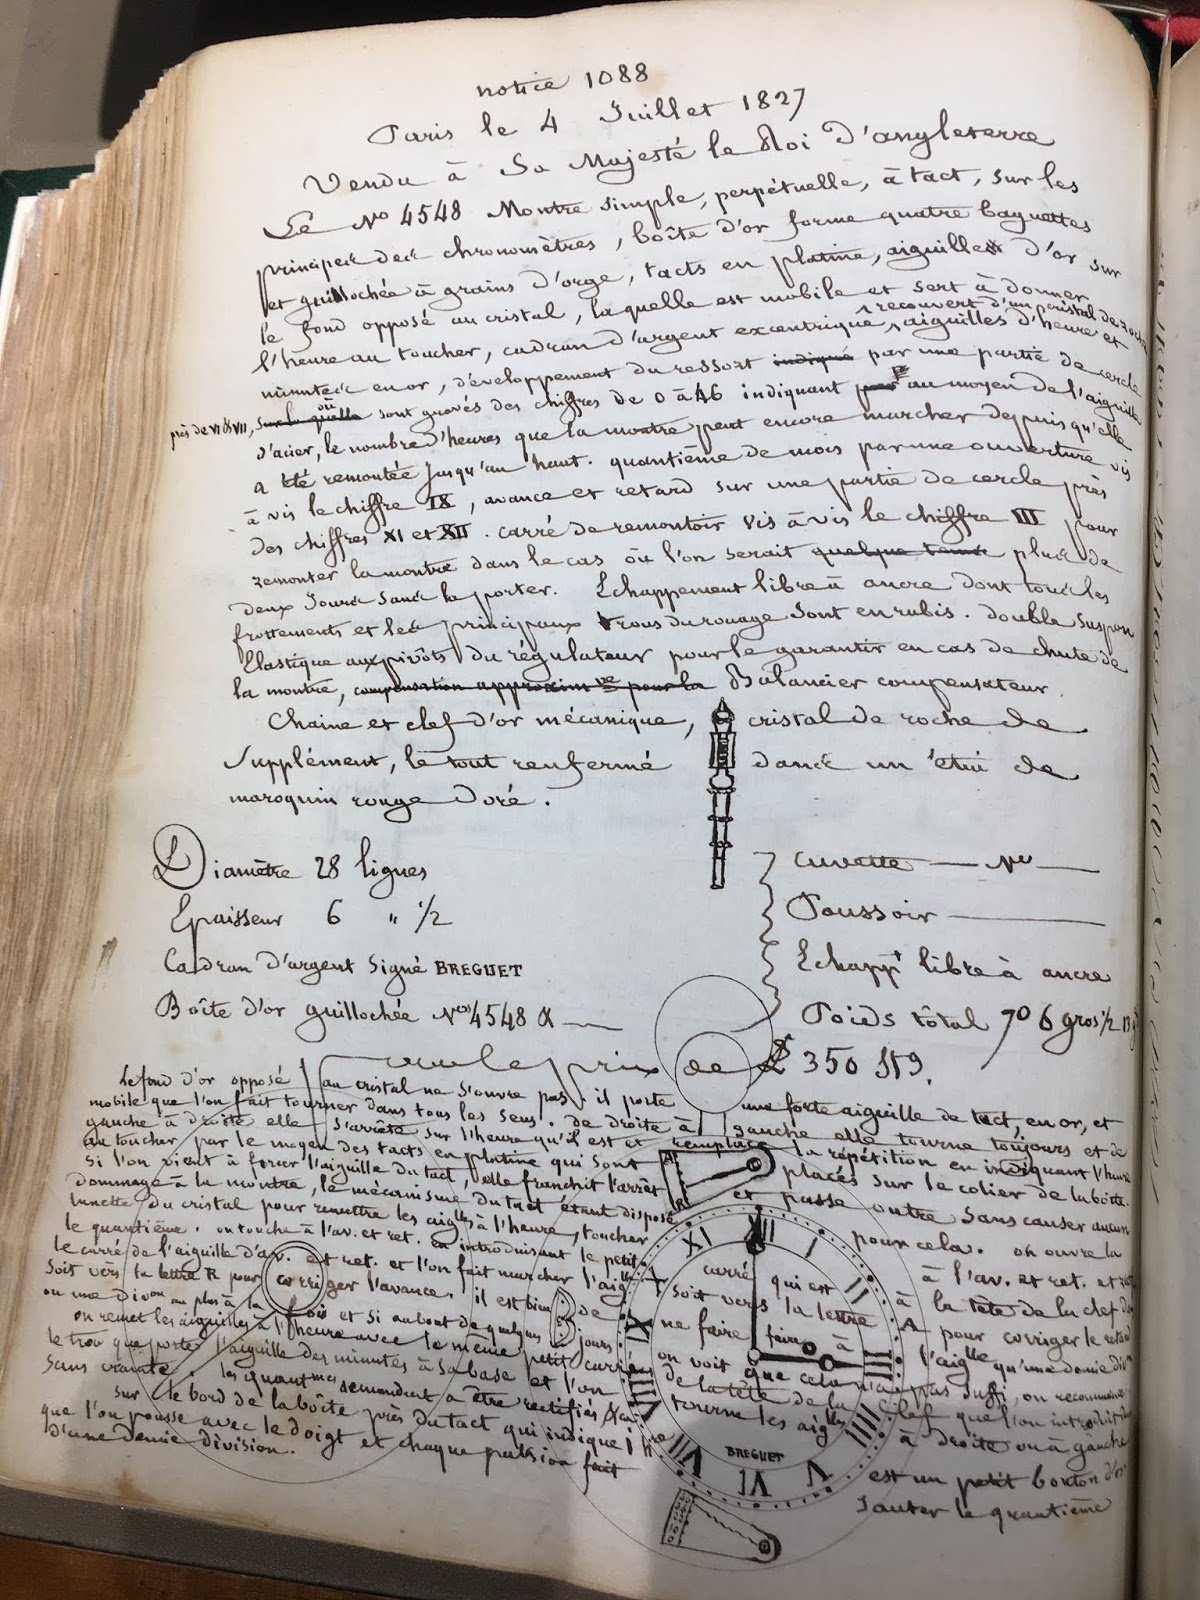 notice 1088
Paris le 4 Juillet 1827
Vendu à Sa Majesté le Roi D'angleterre
Le No 4548 Montre simple, perpétuelle, à tact, sur les
principes des chronomètres, boîte d'or forme quatre baguettes
et guillochée à grains d'orge, tacts en platine, aiguille d'or sur
le fond opposé au cristal, laquelle est mobile et sert à donner
recouvert d'un cristal de roche
l'heure au toucher, cadran d'argent excentrique, aiguilles d'heure et
minutes en or, développement du ressort indiqué par une partie de cercle
près de VI & VII, sur laquelle où sont gravés des chiffres de 0 à 46 indiquant par au moyen de l'aiguille
d'acier, le nombre d'heures que la montre peut encore marcher depuis qu'elle
a été remontée jusqu'au haut. quantième de mois par une ouverture vis
à vis le chiffre IX, avance et retard sur une partie de cercle près
des chiffres XI et XII. carré de remontoir vis à vis le chiffre III pour
remonter la montre dans le cas où l'on serait plus de
deux Jours sans la porter. Echappement libre à ancre dont tous les
frottements et les principaux trous du rouage sont en rubis. double suspon
Elastique aux pivôts du régulateur pour le garantir en cas de chute de
la montre, compensation approxim ve pour la Balancier compensateur.
Chaine et clef d'or mécanique, cristal de roche de
Supplément, le tout renfermé dans un étui de
maroquin rouge doré.
Diamètre 28 lignes
Epaisseur 6 " 1/2
Cadran d'argent Signé BREGUET
Boîte d'or guillochée Nos 4548
cuvette No
Poussoir
Echappt libre à ancre
Poids tôtal 7o 6 gros 1/2
le prix de £ 350 St9.
Le fond d'or opposé au cristal ne s'ouvre pas. il porte une forte aiguille de tact, en or, et
mobile que l'on fait tourner dans tous les sens. de droite à gauche elle tourne toujours et de
gauche à droite elle s'arrête sur l'heure qu'il est et remplace la répétition en indiquant l'heure
au toucher par le moyen des tacts en platine qui sont placés sur le colier de la boîte.
Si l'on vient à forcer l'aiguille du tact, elle franchit l'arrêt et passe outre sans causer aucun
dommage à la montre, le mécanisme du tact étant disposé pour cela. on ouvre la
lunette du cristal pour remettre les aiglles à l'heure, toucher à l'av. et ret. et
le quantième. on touche à l'av. et ret. en introduisant le petit la tête de la clef
le carré de l'aiguille d'av. et ret. et l'on fait marcher l'aiglle pour corriger le retard
carré qui est à
soit vers la lettre A
Soit vers la lettre R pour corriger l'avance. il est bien de ne faire faire à l'aiglle qu'une demie divon
ou une Divon au plus à la fois et si au bout de quelques jours on voit que cela n'a pas suffi, on recommence
on remet les aiguilles à l'heure avec le même petit carré de la tête de la clef que l'on introduit
le trou que porte l'aiguille des minutes à sa base et l'on tourne les aiglles à droite ou à gauche
sans crainte. les quantmes demandent a être rectifiés
sur le bord de la boîte près du tact qui indique est un petit bouton d'or
que l'on pousse avec le doigt et chaque pulsion fait sauter le quantième
D'une demie division.
XII
I
III
IIII
V
VI
VII
VIII
IX
XI
BREGUET
A
R